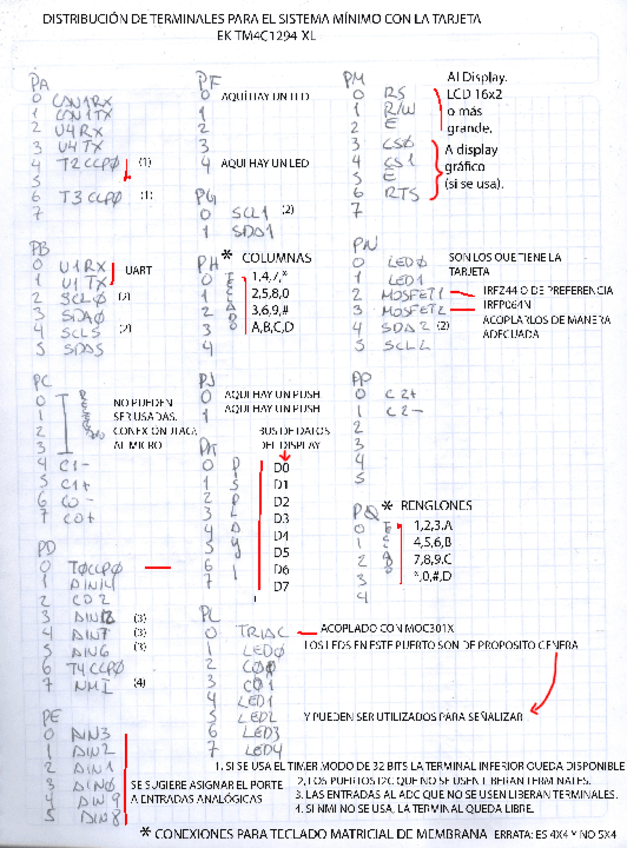 DISTRIBUCIÓN DE TERMINALES PARA EL SISTEMA MÍNIMO CON LA TARJETA
EK TM4C1294 XL
PA
0 CAN1RX
1 CAN1TX
2 U4RX
3 U4TX
4 T2CCPØ (1)
5
6 T3CCPØ (1)
7
PB
0 U1RX
1 U1TX
UART
2 SCLØ (2)
3 SDAØ
4 SCL5 (2)
5 SDA5
PC
0
1
2
3
NO PUEDEN
SER USADAS.
CONEXIÓN JTAG
AL MICRO
4 C1-
5 C1+
6 C0-
7 C0+
PD
0 TØCCPØ
1 AIN14
2 CO2
3 AIN12 (3)
4 AIN7 (3)
5 AIN6 (3)
6 T4CCPØ
7 NMI (4)
PE
0 AIN3
1 AIN2
2 AIN1
3 AINØ
4 AIN9
5 AIN8
SE SUGIERE ASIGNAR EL PORTE
A ENTRADAS ANALÓGICAS
PF
0 AQUÍ HAY UN LED
1
2
3
4 AQUI HAY UN LED
PG
0 SCL1 (2)
1 SDA1
PH * COLUMNAS
TECLADO
0 1,4,7,*
1 2,5,8,0
2 3,6,9,#
3 A,B,C,D
4
PJ
0 AQUI HAY UN PUSH
1 AQUI HAY UN PUSH
BUS DE DATOS
DEL DISPLAY
PK
0 D D0
1 I D1
2 S D2
3 P D3
4 L D4
5 A D5
6 Y D6
7 D7
PL
0 TRIAC ACOPLADO CON MOC301X
1 LEDØ LOS LEDS EN ESTE PUERTO SON DE PROPOSITO GENERA
2 CØØ
3 CØ1
4 LED1
5 LED2 Y PUEDEN SER UTILIZADOS PARA SEÑALIZAR
6 LED3
7 LED4
PM
0 RS
1 R/W
2 E
Al Display.
LCD 16x2
o más
grande.
3 CSØ
4 CS1
5 E
6 RTS
7
A display
gráfico
(si se usa).
PN
0 LEDØ
1 LED1
SON LOS QUE TIENE LA
TARJETA
2 MOSFET1
3 MOSFET2
IRFZ44 O DE PREFERENCIA
IRFP064N
ACOPLARLOS DE MANERA
ADECUADA
4 SDA2 (2)
5 SCL2
PP
0 C2+
1 C2-
2
3
4
5
PQ * RENGLONES
0 1,2,3.A
1 4,5,6,B
2 7,8,9.C
3 *,0,#,D
4
1. SI SE USA EL TIMER MODO DE 32 BITS LA TERMINAL INFERIOR QUEDA DISPONIBLE
2, LOS PUERTOS I2C QUE NO SE USEN LIBERAN TERMINALES.
3. LAS ENTRADAS AL ADC QUE NO SE USEN LIBERAN TERMINALES.
4. SI NMI NO SE USA, LA TERMINAL QUEDA LIBRE.
* CONEXIONES PARA TECLADO MATRICIAL DE MEMBRANA ERRATA: ES 4X4 Y NO 5X4